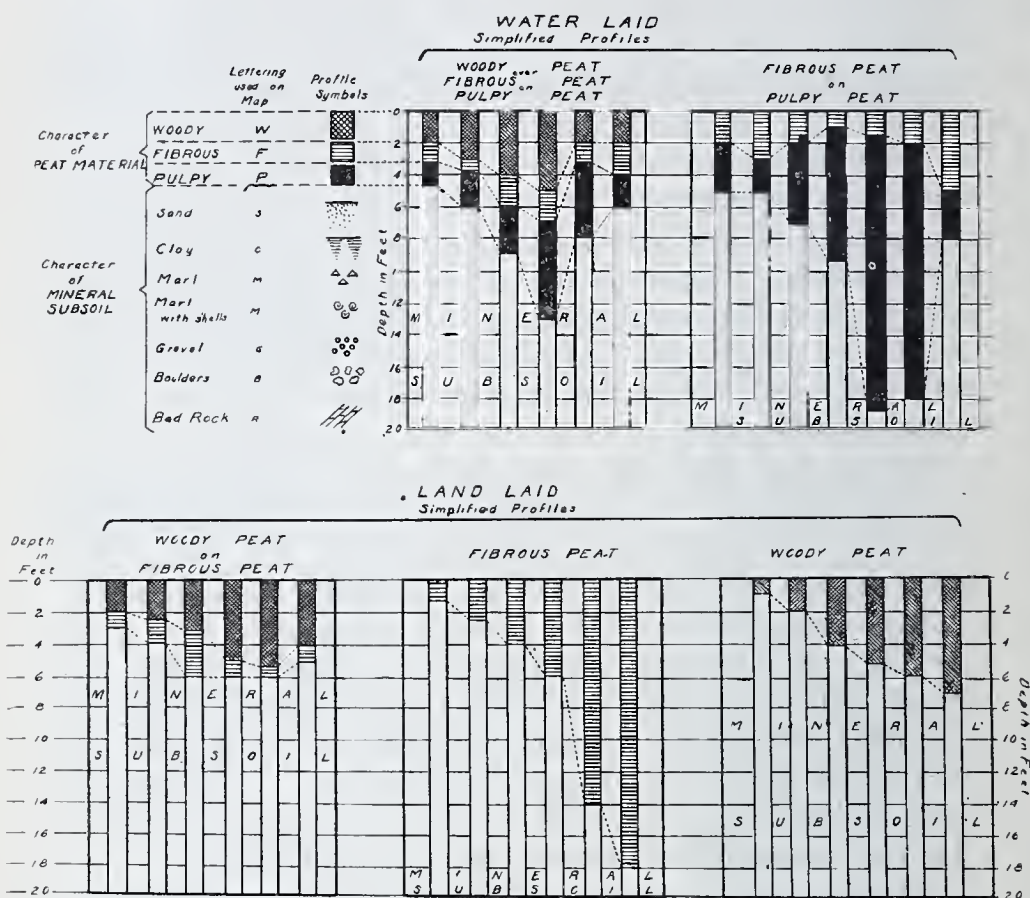 WATER LAID
Simplified Profiles
Lettering used on Map
Profile Symbols
Character of PEAT MATERIAL
WOODY W
FIBROUS F
PULPY P
Character of MINERAL SUBSOIL
Sand S
Clay C
Marl M
Marl with shells M
Gravel G
Boulders B
Bed Rock R
WOODY over PEAT
FIBROUS on PEAT
PULPY PEAT
FIBROUS PEAT
on
PULPY PEAT
Depth in Feet
0
2
4
6
8
12
14
16
18
20
M I N E R A L
S U B S O I L
M I N E R A L
S U B S O I L
LAND LAID
Simplified Profiles
Depth
in
Feet
WOODY PEAT
on
FIBROUS PEAT
FIBROUS PEAT
WOODY PEAT
0
2
4
6
8
10
12
14
16
18
20
M I N E R A L
S U B S O I L
M I N E R A L
S U B S C I L
M I N E R A L
S U B S O I L
0
2
4
6
8
10
12
14
16
18
20
Depth in Feet